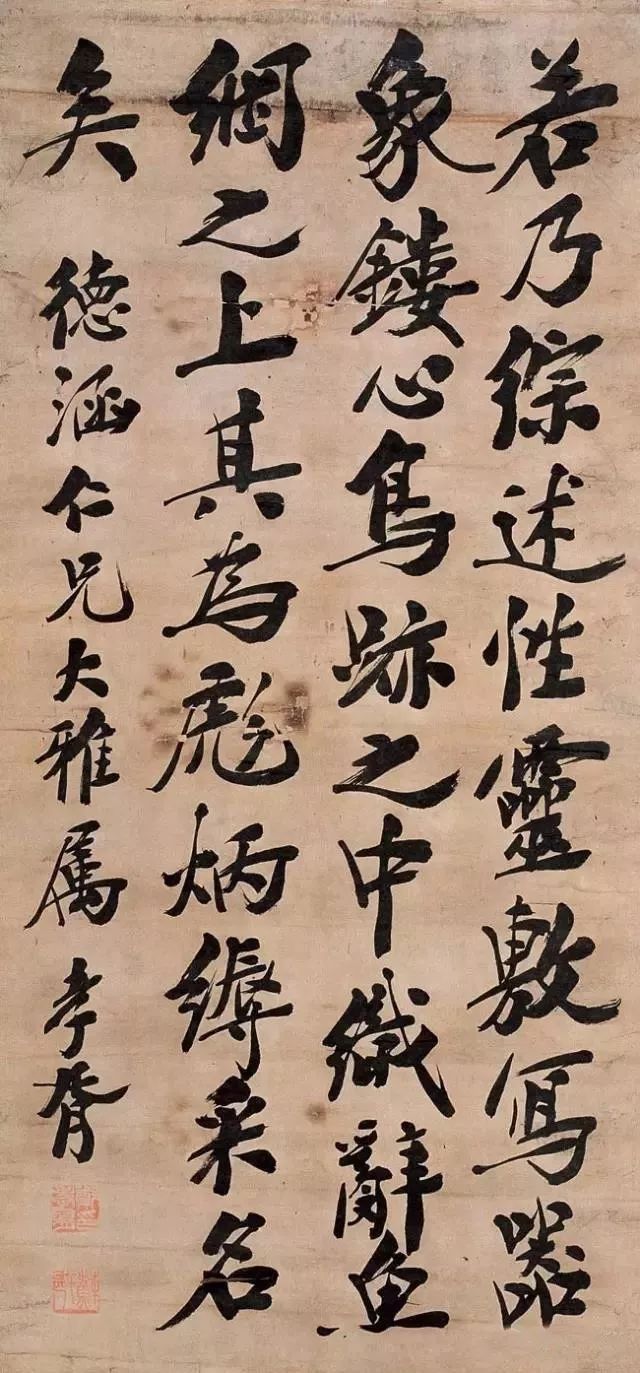 若乃綜述性靈敷寫器
象鏤心鳥跡之中織辭魚
網之上其為彪炳縟采名
矣
德涵仁兄大雅属 孝胥